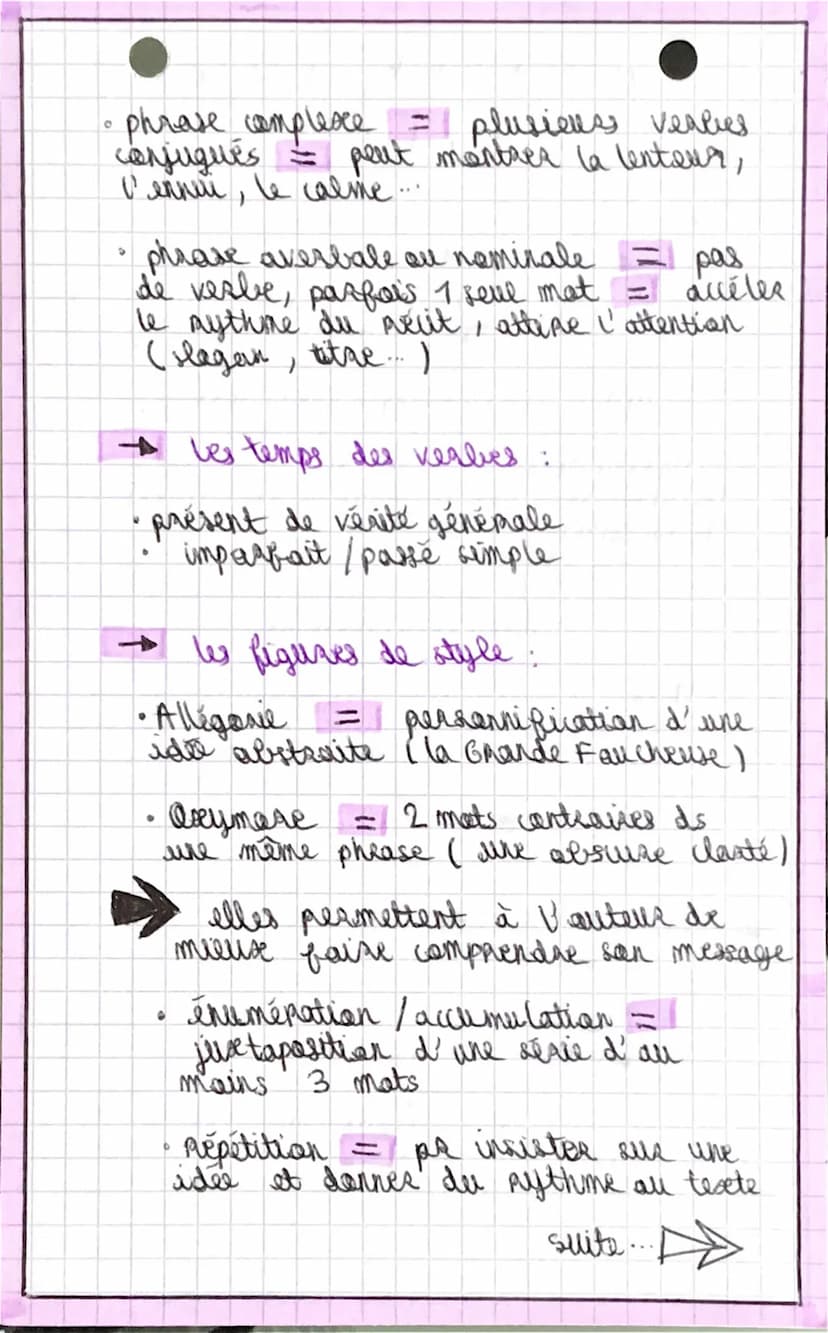 • phrase complexe = plusieurs verbes
conjugués = peut montrer la lenteur,
l'ennui, le calme...
• phrase averbale ou nominale = pas
de verbe, parfois 1 seul mot = accéler
le rythme du récit, attire l'attention
(slogan, titre...)
→ les temps des verbes :
• présent de vérité générale
• imparfait / passé simple
→ les figures de style :
• Allégorie = personnification d'une
idée abstraite (la Grande Faucheuse)
• Oxymore = 2 mots contraires ds
une même phrase (une obscure clarté)
➔ elles permettent à l'auteur de
mieux faire comprendre son message
• énumération / accumulation =
juxtaposition d'une série d'au
moins 3 mots
• répétition = pr insister sur une
idée et donner du rythme au texte
suite... ➔